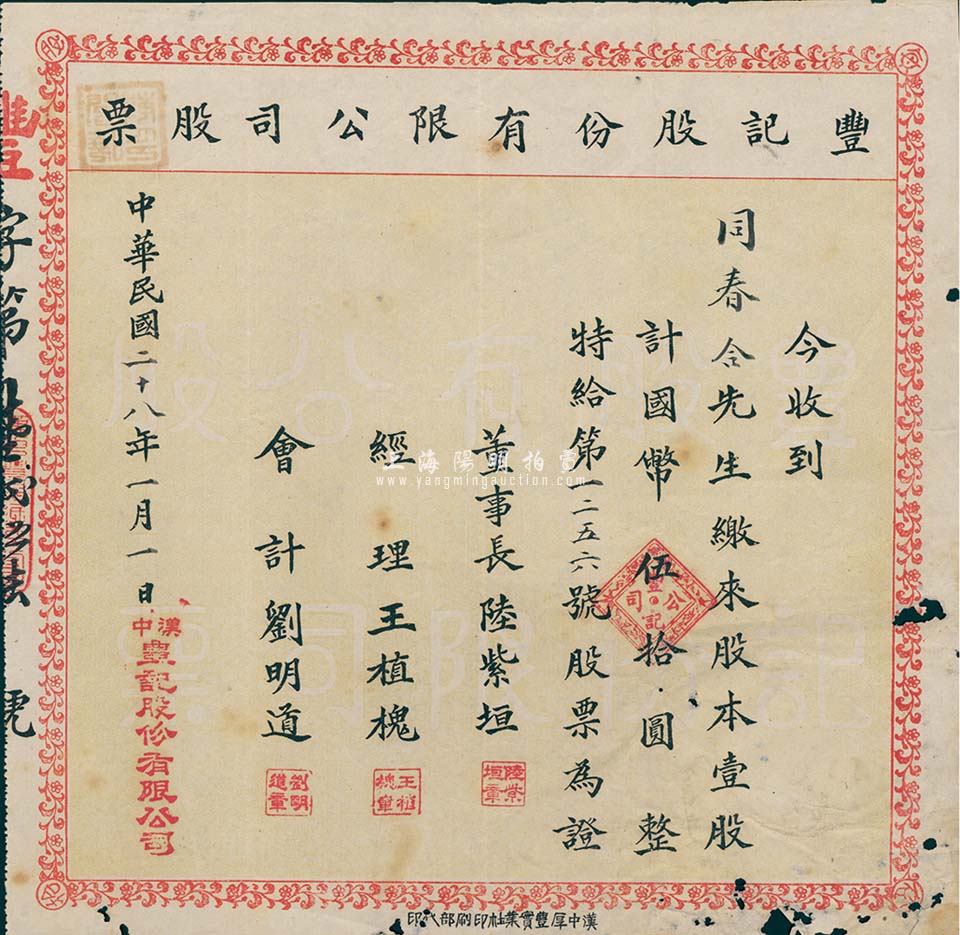 豐記股份有限公司股票
今收到
同春合先生繳來股本壹股
計國幣伍拾圓整
特給第一二五六號股票為證
董事長陸紫垣
經理王植槐
會計劉明道
中華民國二十八年一月一日
漢中豐記股份有限公司
豐記公司
陸紫垣章
王植槐章
劉明道章
豐字第
號
豐記股份有限公司股票
上海陽明拍賣
www.yangmingauction.com
漢中厚豐實業社印刷部代印